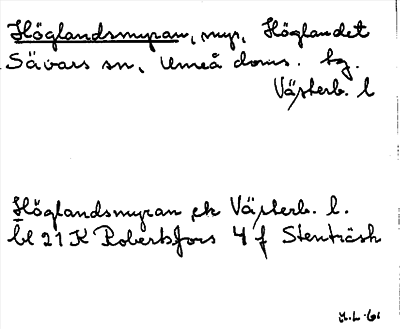 Höglandsmyran, myr, Höglandet
Sävars sn, Umeå doms. hg.
Västerb. l
Höglandsmyran ek Västerb. l.
bl 21 K Robertsfors 4 f Stenträsk